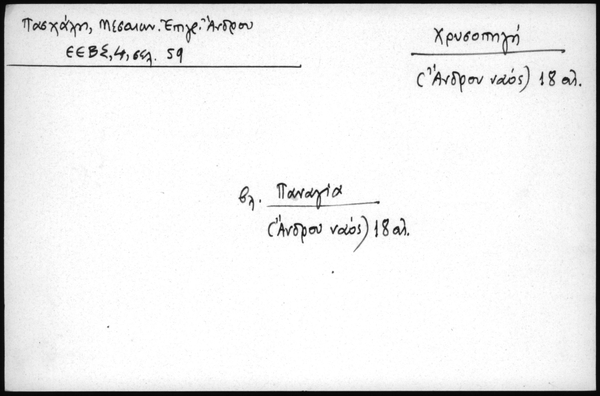 Πασχάλη, Μεσαιων. Ἐπιγρ. Ἄνδρου
ΕΕΒΣ, 4, σελ. 59
Χρυσοπηγή
(Ἄνδρου ναός) 18 αι.
βλ. Παναγία
(Ἄνδρου ναός) 18 αι.